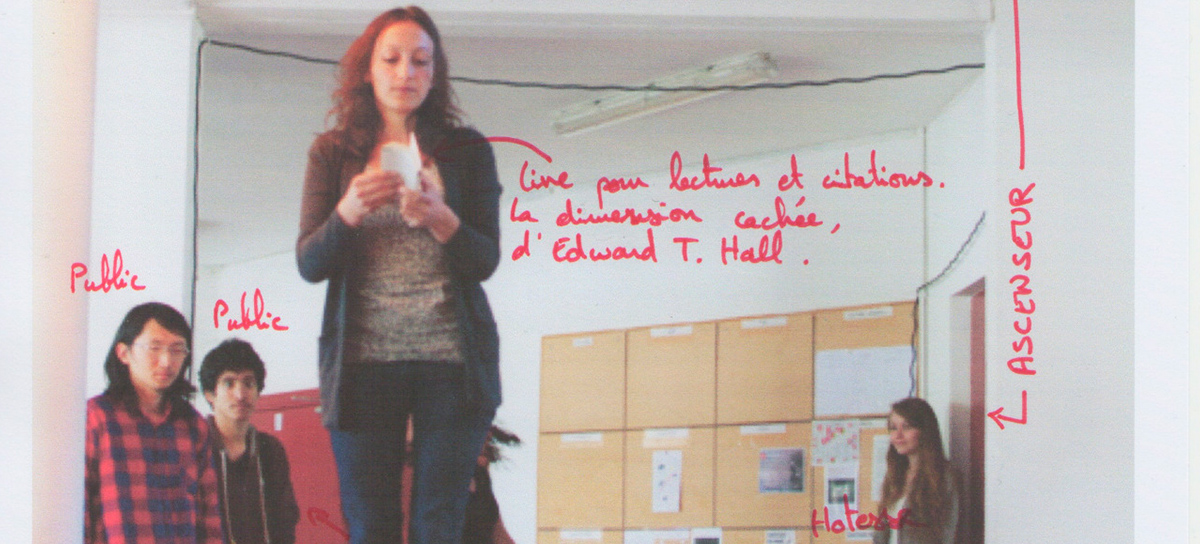 Livre pour lectures et citations.
La dimension cachée,
d'Edward T. Hall.
Public
Public
ASCENSEUR
Hotesse